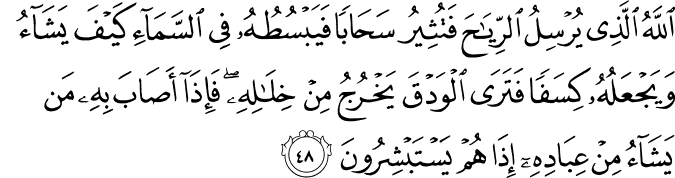 ٱللَّهُ ٱلَّذِى يُرْسِلُ ٱلرِّيَـٰحَ فَتُثِيرُ سَحَابًا فَيَبْسُطُهُۥ فِى ٱلسَّمَآءِ كَيْفَ يَشَآءُ
وَيَجْعَلُهُۥ كِسَفًا فَتَرَى ٱلْوَدْقَ يَخْرُجُ مِنْ خِلَـٰلِهِۦ ۖ فَإِذَآ أَصَابَ بِهِۦ مَن
يَشَآءُ مِنْ عِبَادِهِۦٓ إِذَا هُمْ يَسْتَبْشِرُونَ ٤٨